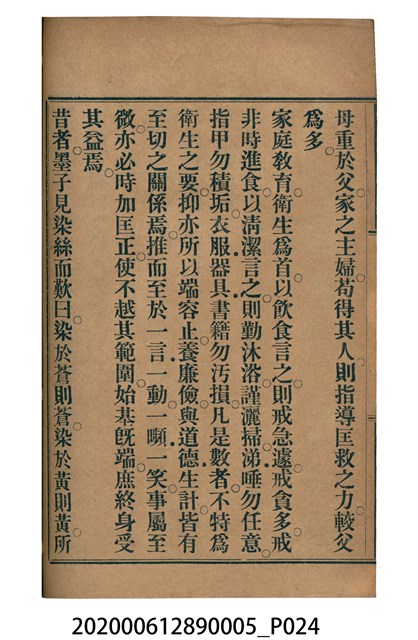 母重於父家之主婦苟得其人則指導匡救之力較父
為多
家庭教育衛生為首以飲食言之則戒急遽戒貪多戒
非時進食以清潔言之則勤沐浴謹灑掃涕唾勿任意
指甲勿積垢衣服器具書籍勿汚損凡是數者不特為
衛生之要抑亦所以端容止養廉儉與道德生計皆有
至切之關係焉推而至於一言一動一嚬一笑事屬至
微亦必時加匡正使不越其範圍始基旣端庶終身受
其益焉
昔者墨子見染絲而歎曰染於蒼則蒼染於黃則黃所
202000612890005_P024